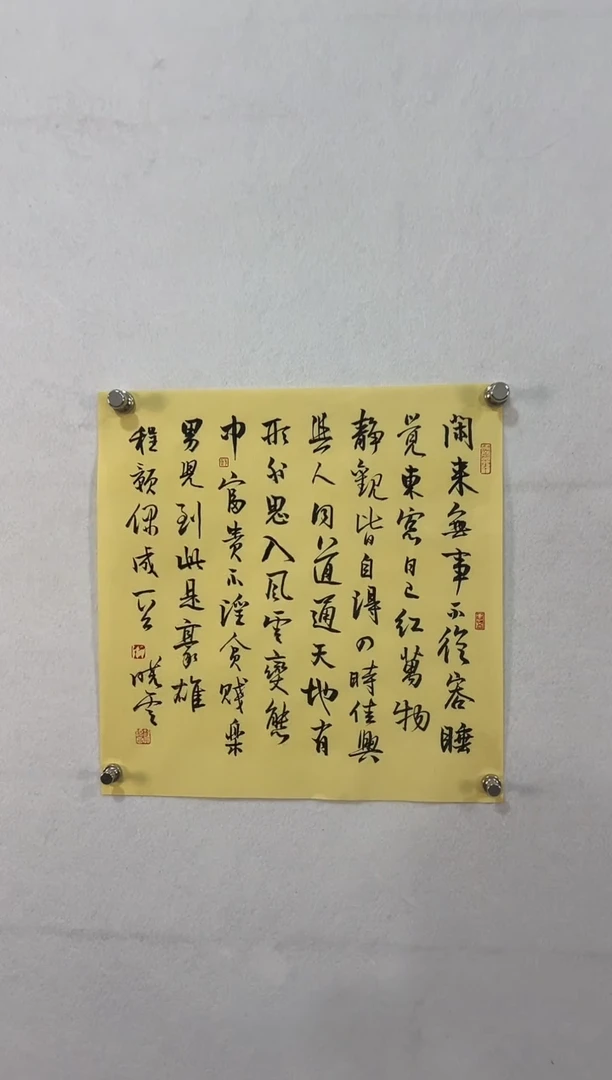 閑来無事不從容睡
覺東窓日已紅萬物
靜觀皆自得四時佳興
與人同道通天地有
形外思入風雲變態
中富貴不淫貧賤樂
男兒到此是豪雄
程顥偶成 曉雲